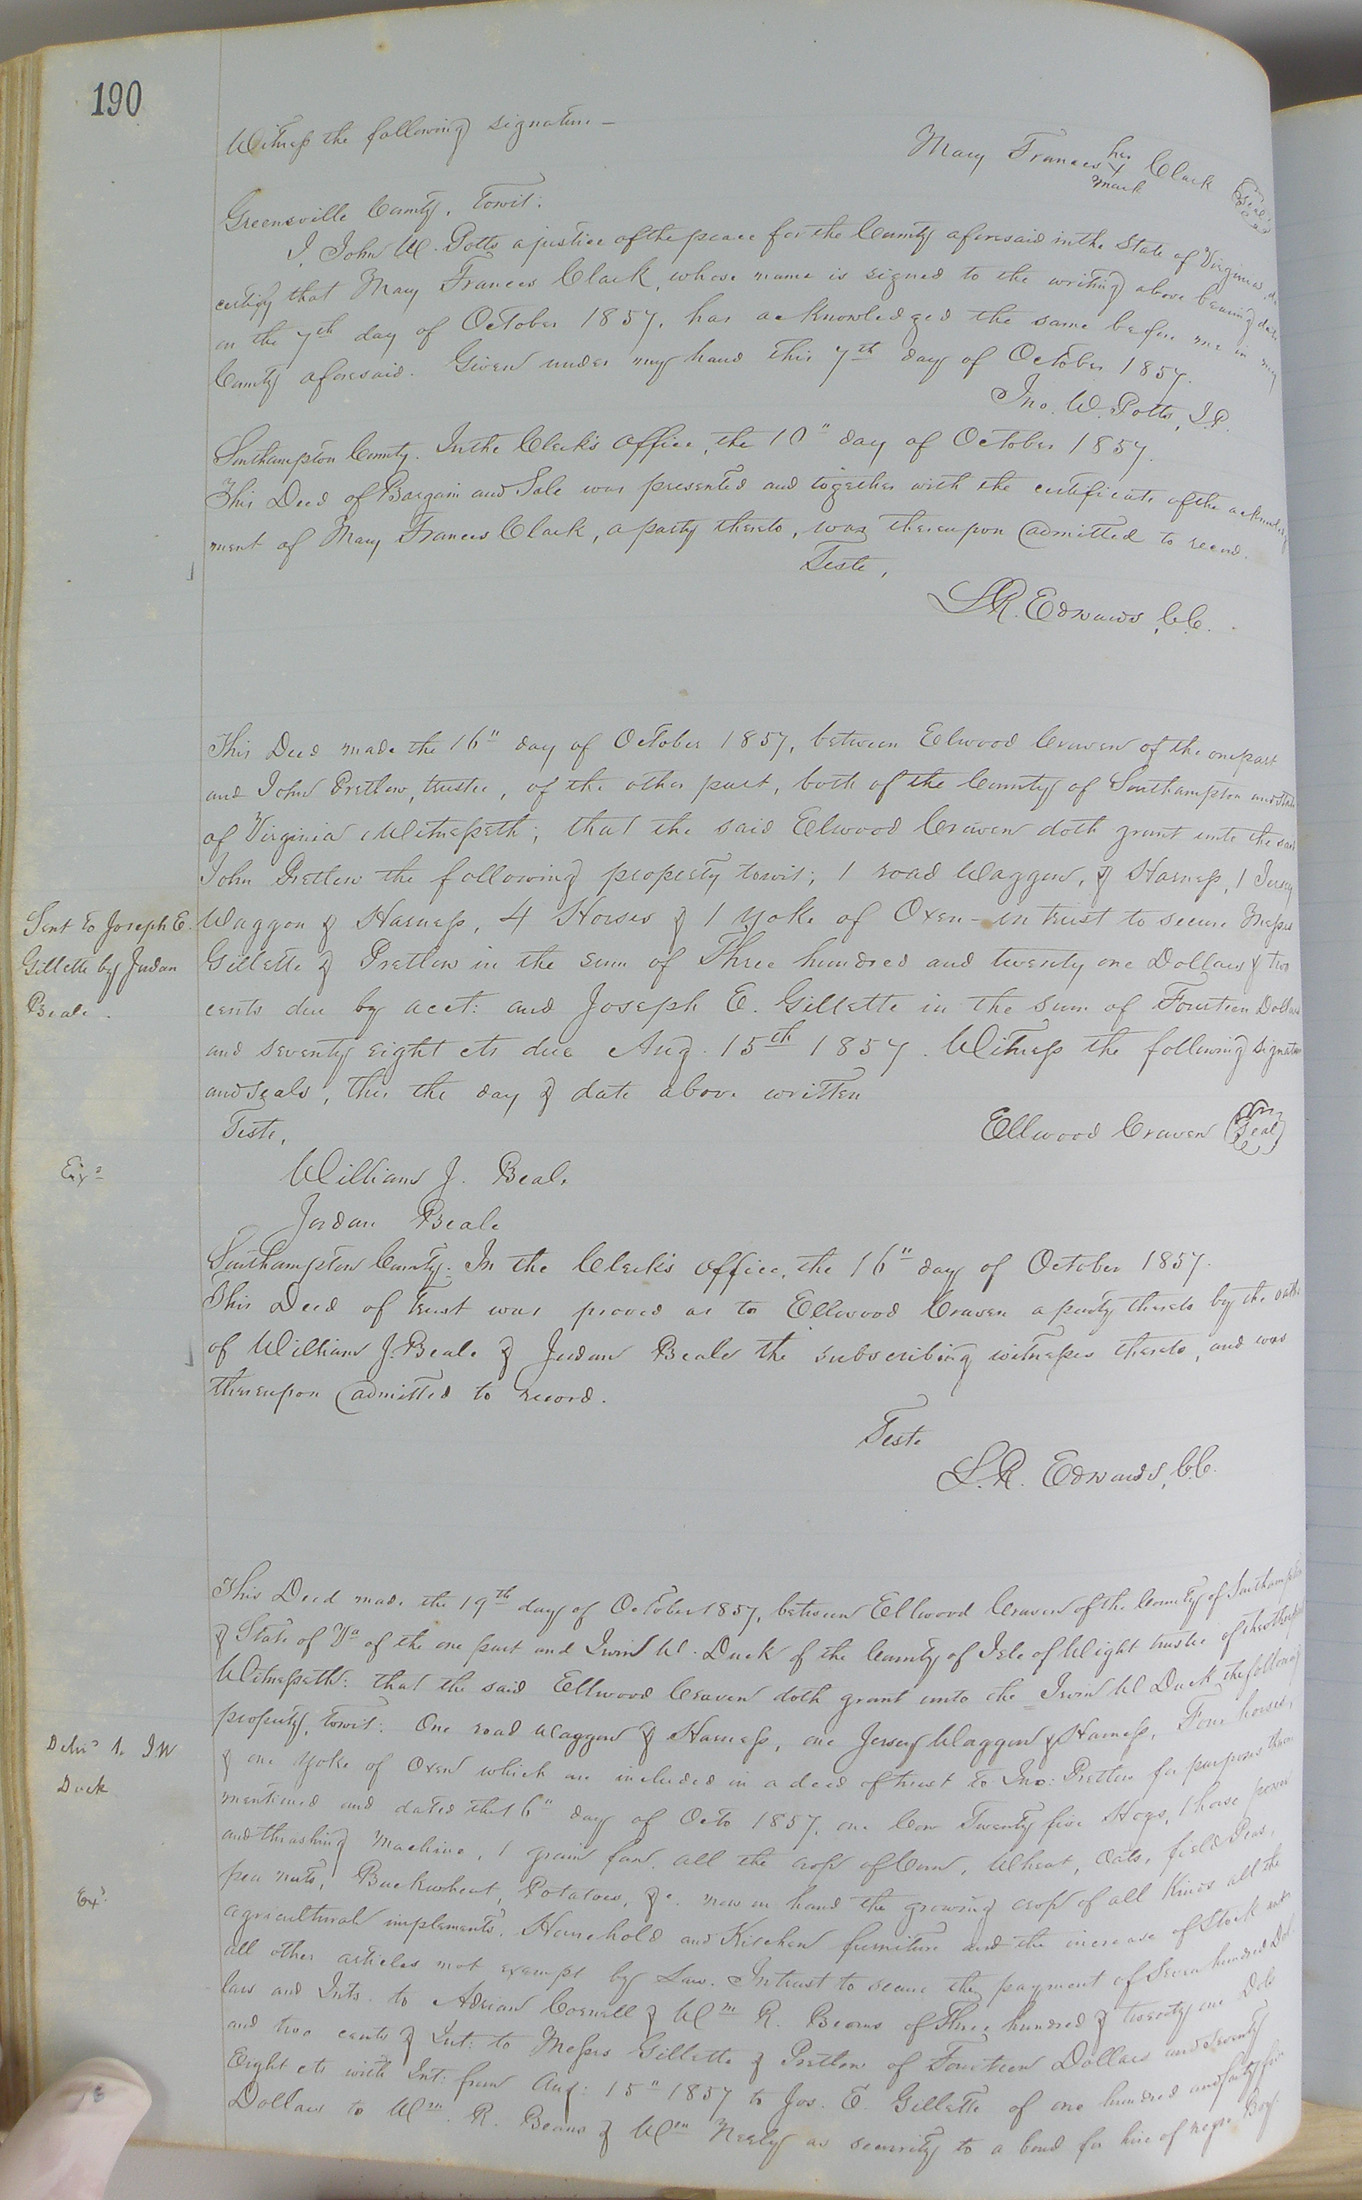 190
Witness the following signature—
Mary Frances her Clark (Seal)
X
mark
Greensville County, towit:
I, John W. Potts a justice of the peace for the County aforesaid in the State of Virginia, do
certify that Mary Frances Clark, whose name is signed to the writing above bearing date
on the 7th day of October 1857, has acknowledged the same before me in my
County aforesaid. Given under my hand this 7th day of October 1857.
Jno. W. Potts, J.P.
Southampton County. In the Clerk's Office, the 10" day of October 1857.
This Deed of Bargain and Sale was presented and together with the certificate of the acknowledg
ment of Mary Frances Clark, a party thereto, was thereupon admitted to record.
Teste,
L.R. Edwards, C.C.
This Deed made the 16" day of October 1857, between Elwood Craven of the one part
and John Pretlow, trustee, of the other part, both of the County of Southampton and State
of Virginia Witnesseth; that the said Elwood Craven doth grant unto the said
John Pretlow the following property towit; 1 road Waggon, & Harness, 1 Jersey
Sent to Joseph E.
Gillette by Jordan
Beale.
Waggon & Harness, 4 Horses & 1 yoke of Oxen—in trust to secure Messrs
Gillette & Pretlow in the sum of Three hundred and twenty one Dollars & two
cents due by acct: and Joseph E. Gillette in the sum of Fourteen Dollars
and seventy eight cts due Aug. 15th 1857. Witness the following signature
and seals, this the day & date above written
Teste,
Ellwood Craven (Seal)
Exd
William J. Beale
Jordan Beale
Southampton County: In the Clerk's office, the 16" day of October 1857.
This Deed of Trust was proved as to Ellwood Craven a party thereto by the oaths
of William J. Beale & Jordan Beale the subscribing witnesses thereto, and was
thereupon admitted to record.
Teste
L.R. Edwards, C.C.
This Deed made the 19th day of October 1857, between Ellwood Craven of the County of Southampton
& State of Va of the one part and Irwin W. Duck of the County of Isle of Wight trustee of the other part
Witnesseth: that the said Ellwood Craven doth grant unto the Irwin W Duck the following
property, towit: One road waggon & Harness, one Jersey Waggon & Harness, Four horses,
Deld to I W
Duck
& one yoke of Oxen which are included in a deed of trust to Jno: Pretlow for purposes therein
mentioned and dated the 16" day of Octo 1857, one Cow Twenty five Hogs, 1 horse power
and thrashing Machine, 1 grain fan, all the crop of Corn, Wheat, Oats, field Peas,
Exd
pea nuts, Buckwheat, Potatoes, &c. now on hand the growing crop of all Kinds all the
agricultural implements, Household and Kitchen furniture and the increase of Stock and
all other articles not exempt by Law. In trust to secure the payment of Seven hundred Dol
lars and Ints. to Adrian Cornell & Wm R. Beans of Three hundred & twenty one Dols
and two cents & Int: to Messrs Gillette & Pretlow of Fourteen Dollars and Seventy
Eight cts with Int: from Aug: 15" 1857 to Jos. E. Gillette of one hundred and forty five
Dollars to Wm. R. Beans & Wm Neely as security to a bond for hire of negro Boy